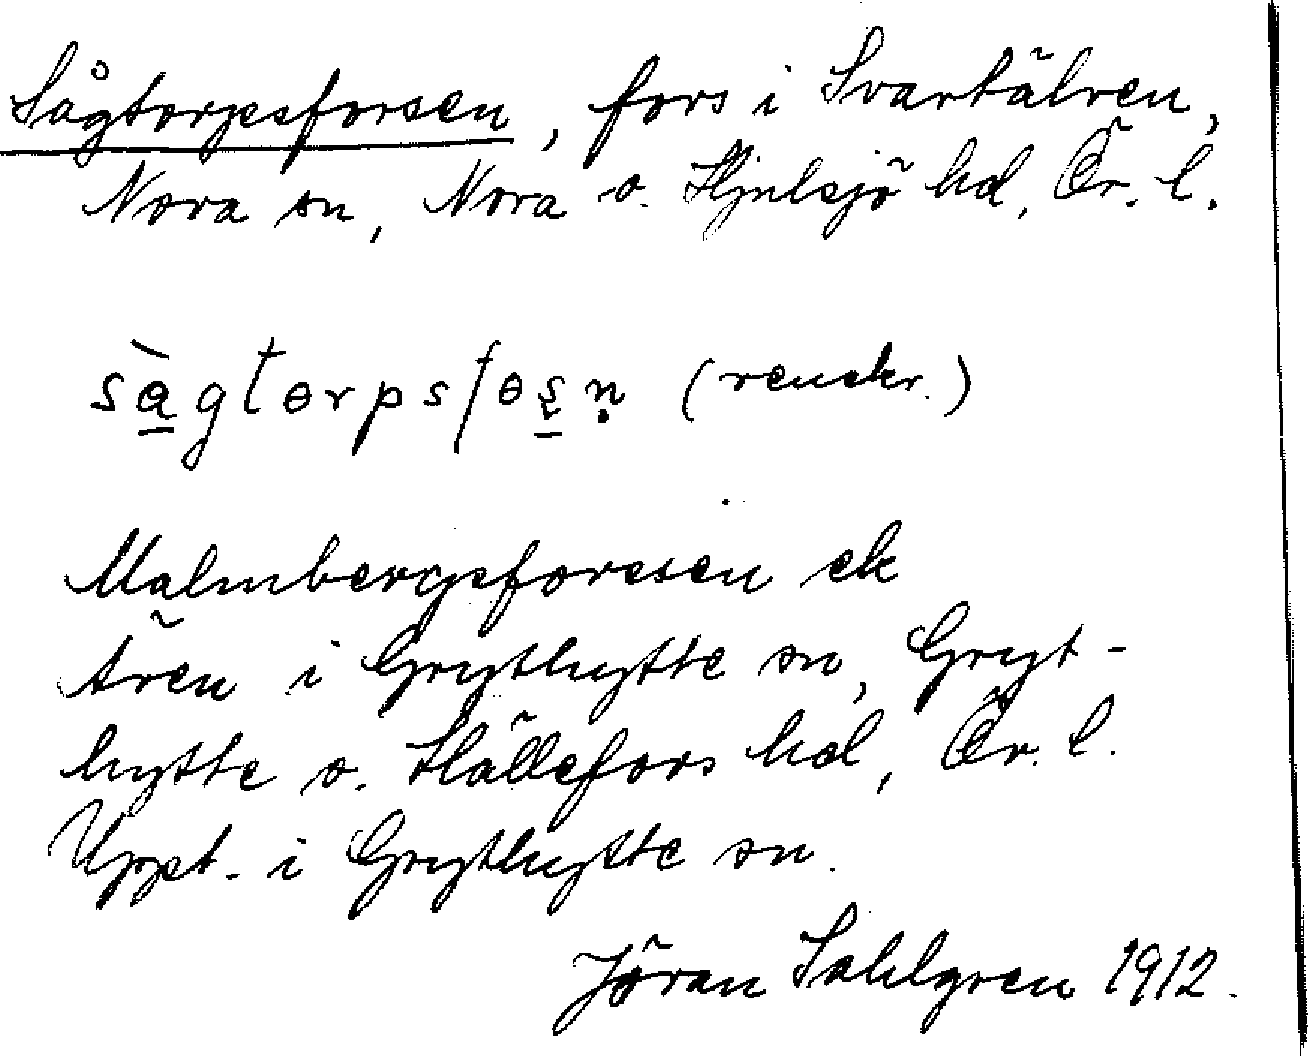 Sågtorpsforsen, fors i Svartälven,
Nora sn, Nora o. Hjulsjö hd, Ör. l.
sàgtɵrpsfɵs̱ṇ (renskr.)
Malmbergsforsen ek
även i Grythytte sn, Gryt-
hytte o. Hällefors hd, Ör. l.
Uppt. i Grythytte sn.
Jöran Sahlgren 1912.